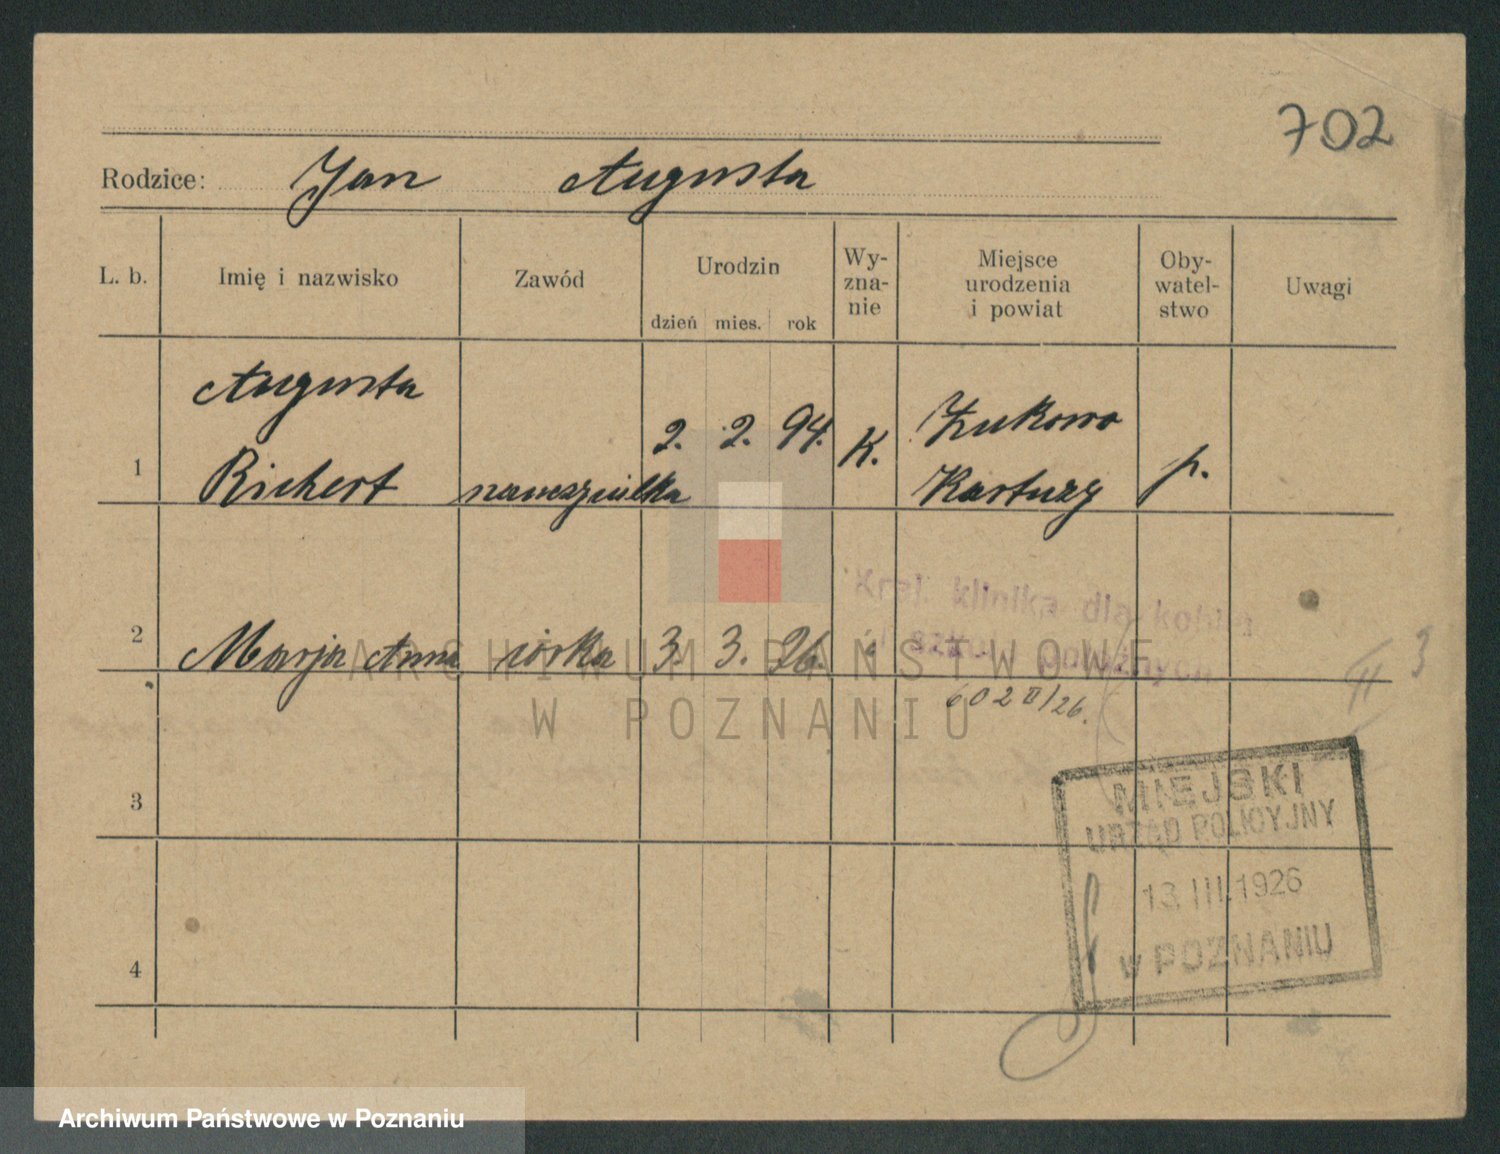 702
Rodzice: Jan Augusta
L. b. Imię i nazwisko Zawód Urodzin dzień mies. rok Wy-zna-nie Miejsce urodzenia i powiat Oby-watel-stwo Uwagi
Augusta
2. 2. 94. K. Żukowo
1 Richert nauczycielka Kartuzy p.
Kraj. klinika dla kobiet
2 Marja Anna córka 3. 3. 26. położnych
602 II/26.
II 3
ARCHIWUM PAŃSTWOWE
W POZNANIU
3
MIEJSKI
URZĄD POLICYJNY
13. III. 1926
w POZNANIU
4
Archiwum Państwowe w Poznaniu